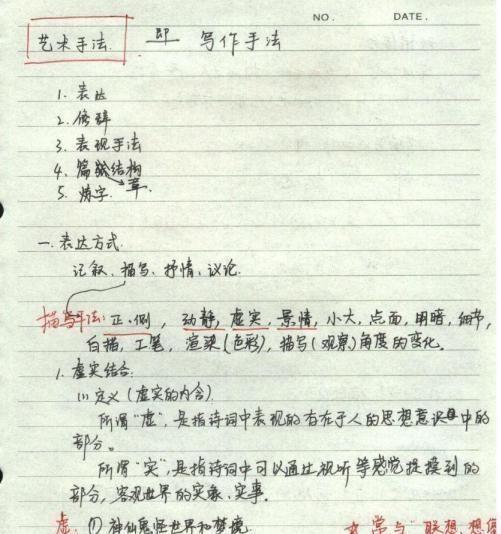 NO. DATE.
艺术手法. 即 写作手法
1. 表达
2. 修辞
3. 表现手法
4. 篇 结构
章.
5. 炼字.
一. 表达方式.
记叙、描写、抒情、议论.
描写手法: 正、侧, 动静, 虚实, 景情, 小大, 点面, 明暗, 细节,
白描, 工笔, 渲染(色彩), 描写(观察)角度的变化.
1. 虚实结合.
(1) 定义(虚实的内含)
所谓“虚”, 是指诗词中表现的存在于人的思想意识中的
部分。
所谓“实”, 是指诗词中可以通过视听等感觉捉摸到的
部分, 客观世界的实象、实事.
虚: ① 神仙鬼怪世界和梦境.
常与“联想、想